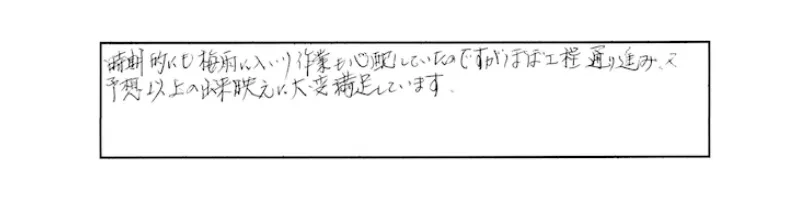 時期的にも梅雨に入いり作業も心配していたのですがほぼ工程通り進み、又
予想以上の出来映えに大変満足しています。